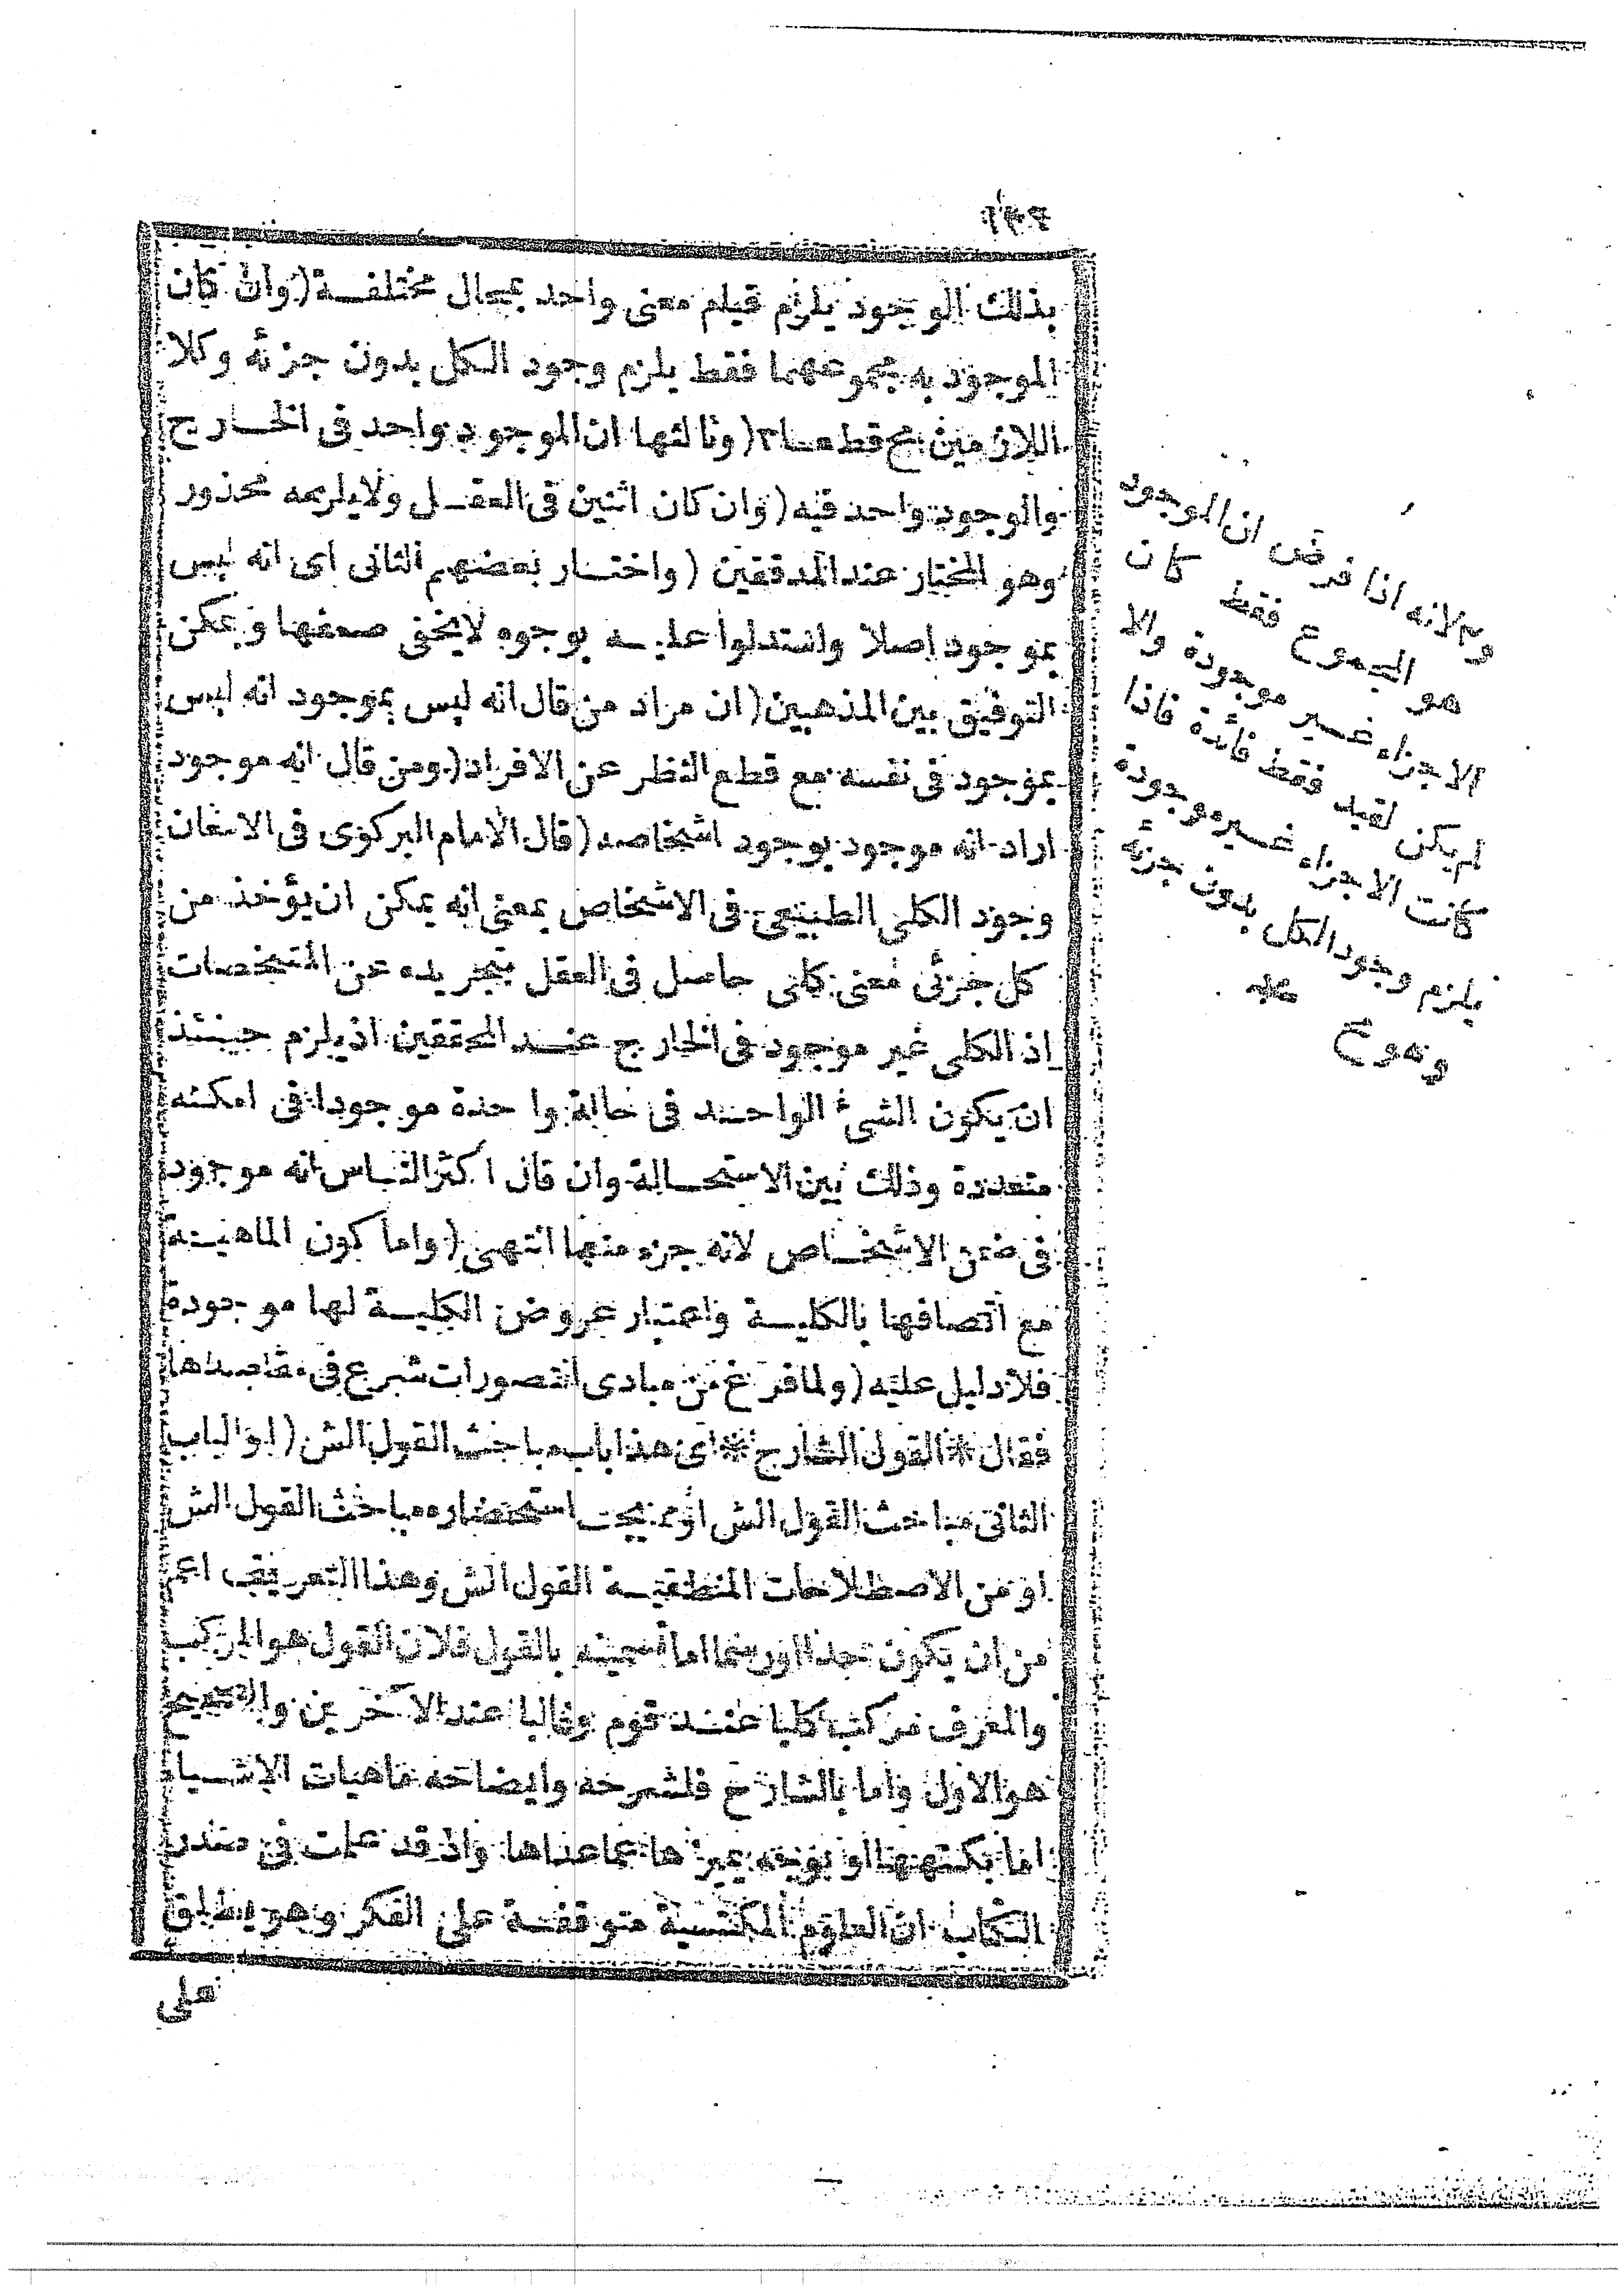 بذلك الوجود يلزم قيام معنى واحد بمحال مختلفة (وان كان
الموجود به مجموعهما فقط يلزم وجود الكل بدون جزئه وكلا
اللازمين مح قطعا ٢ (وثالثها ان الموجود واحد فى الخارج
والوجود واحد فيه (وان كان اثنين فى العقل ولا يلزمه محذور
وهو المختار عند المدققين (واختار بعضهم الثانى اى انه ليس
بموجود اصلا واستدلوا عليه بوجوه لا يخفى ضعفها ويمكن
التوفيق بين المذهبين (ان مراد من قال انه ليس بموجود انه ليس
بموجود فى نفسه مع قطع النظر عن الافراد (ومن قال انه موجود
اراد انه موجود بوجود اشخاصه (قال الامام البركوى فى الامعان
وجود الكلى الطبيعى فى الاشخاص بمعنى انه يمكن ان يؤخذ من
كل جزئى معنى كلى حاصل فى العقل بتجريده عن المشخصات
اذ الكلى غير موجود فى الخارج عند المحققين اذ يلزم حينئذ
ان يكون الشئ الواحد فى حالة واحدة موجودا فى امكنه
متعددة وذلك بين الاستحالة وان قال اكثر الناس انه موجود
فى ضمن الاشخاص لانه جزء منها انتهى (واما كون الماهية
مع اتصافها بالكلية واعتبار عروض الكلية لها موجودة
فلا دليل عليه (ولما فرغ من مبادى التصورات شرع فى مقاصدها
فقال * القول الشارح * اى هذا باب مباحث القول الش (او الباب
الثانى مباحث القول الش او مما يجب استحضاره مباحث القول الش
او من الاصطلاحات المنطقية القول الش وهذا التعريف اعم
من ان يكون حدا او رسما اما تسميته بالقول فلان القول هو المركب
والمعرف مركب كليا عند قوم وغالبا عند الآخرين والصحيح
هو الاول واما بالشارح فلشرحه وايضاحه ماهيات الاشياء
اما بكنهها او بوجه يميزها عما عداها واذ قد علمت فى صدر
الكتاب ان العلوم المكتسبة متوقفة على الفكر وهو يطلق
على
٢ لانه اذا فرض ان الموجود
هو المجموع فقط كان
الاجزاء غير موجودة والا
لم يكن لقيد فقط فائدة فاذا
كانت الاجزاء غير موجودة
يلزم وجود الكل بدون جزئه
وهو مح